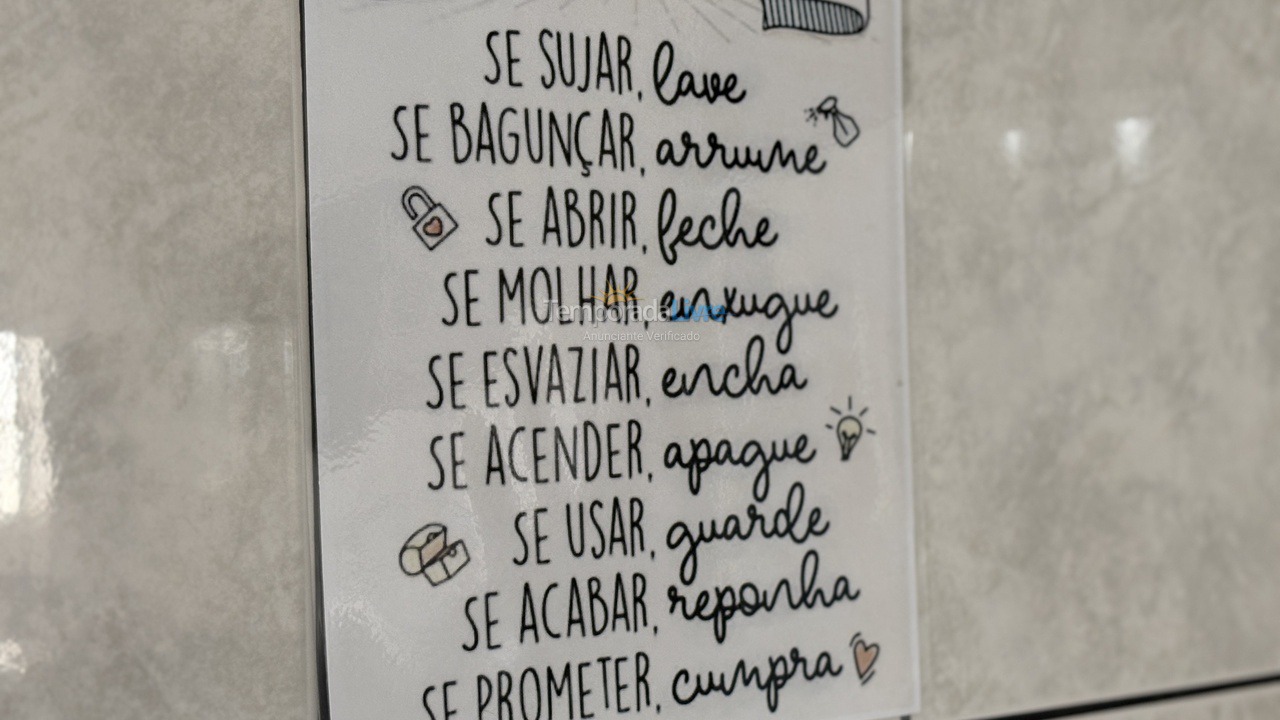 SE SUJAR, lave
SE BAGUNÇAR, arrume
SE ABRIR, feche
SE MOLHAR, enxugue
TemporadaLivre
Anunciante Verificado
SE ESVAZIAR, encha
SE ACENDER, apague
SE USAR, guarde
SE ACABAR, reponha
SE PROMETER, cumpra